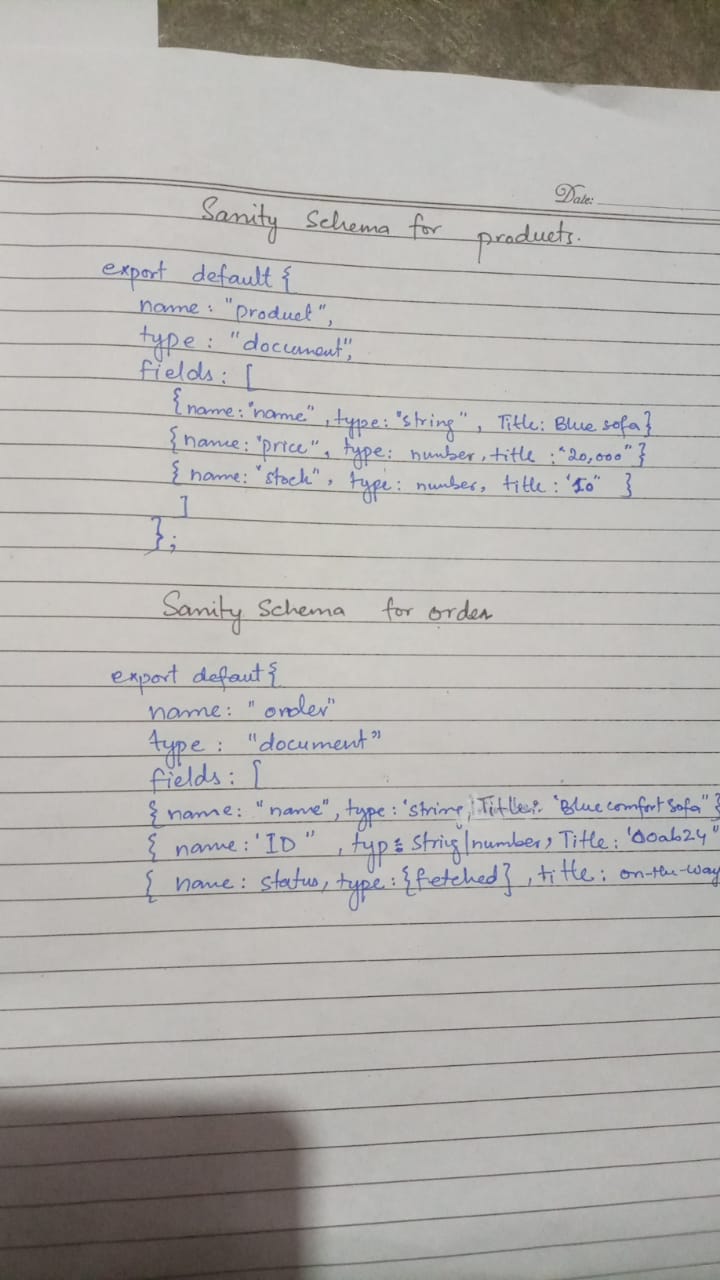 Date:
Sanity Schema for products.
export default {
name: "product",
type: "document",
fields: [
{ name: "name", type: "string", Title: Blue sofa }
{ name: "price", type: number, title: "20,000" }
{ name: "stock", type: number, title: '10" }
]
};
Sanity Schema for order
export defaut {
name: "order"
type: "document"
fields: [
{ name: "name", type: 'string, Title: 'Blue comfort sofa" }
{ name: 'ID", typ: string|number, Title: '00ab24"
{ name: status, type: {fetched}, title: on-the-way